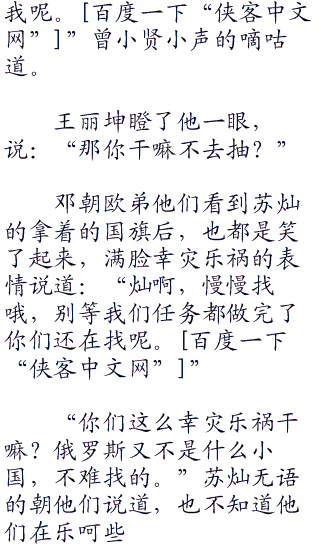 我呢。[百度一下“侠客中文
网”]”曾小贤小声的嘀咕
道。
王丽坤瞪了他一眼，
说：“那你干嘛不去抽？”
邓朝欧弟他们看到苏灿
的拿着的国旗后，也都是笑
了起来，满脸幸灾乐祸的表
情说道：“灿啊，慢慢找
哦，别等我们任务都做完了
你们还在找呢。[百度一下
“侠客中文网”]”
“你们这么幸灾乐祸干
嘛？俄罗斯又不是什么小
国，不难找的。”苏灿无语
的朝他们说道，也不知道他
们在乐呵些